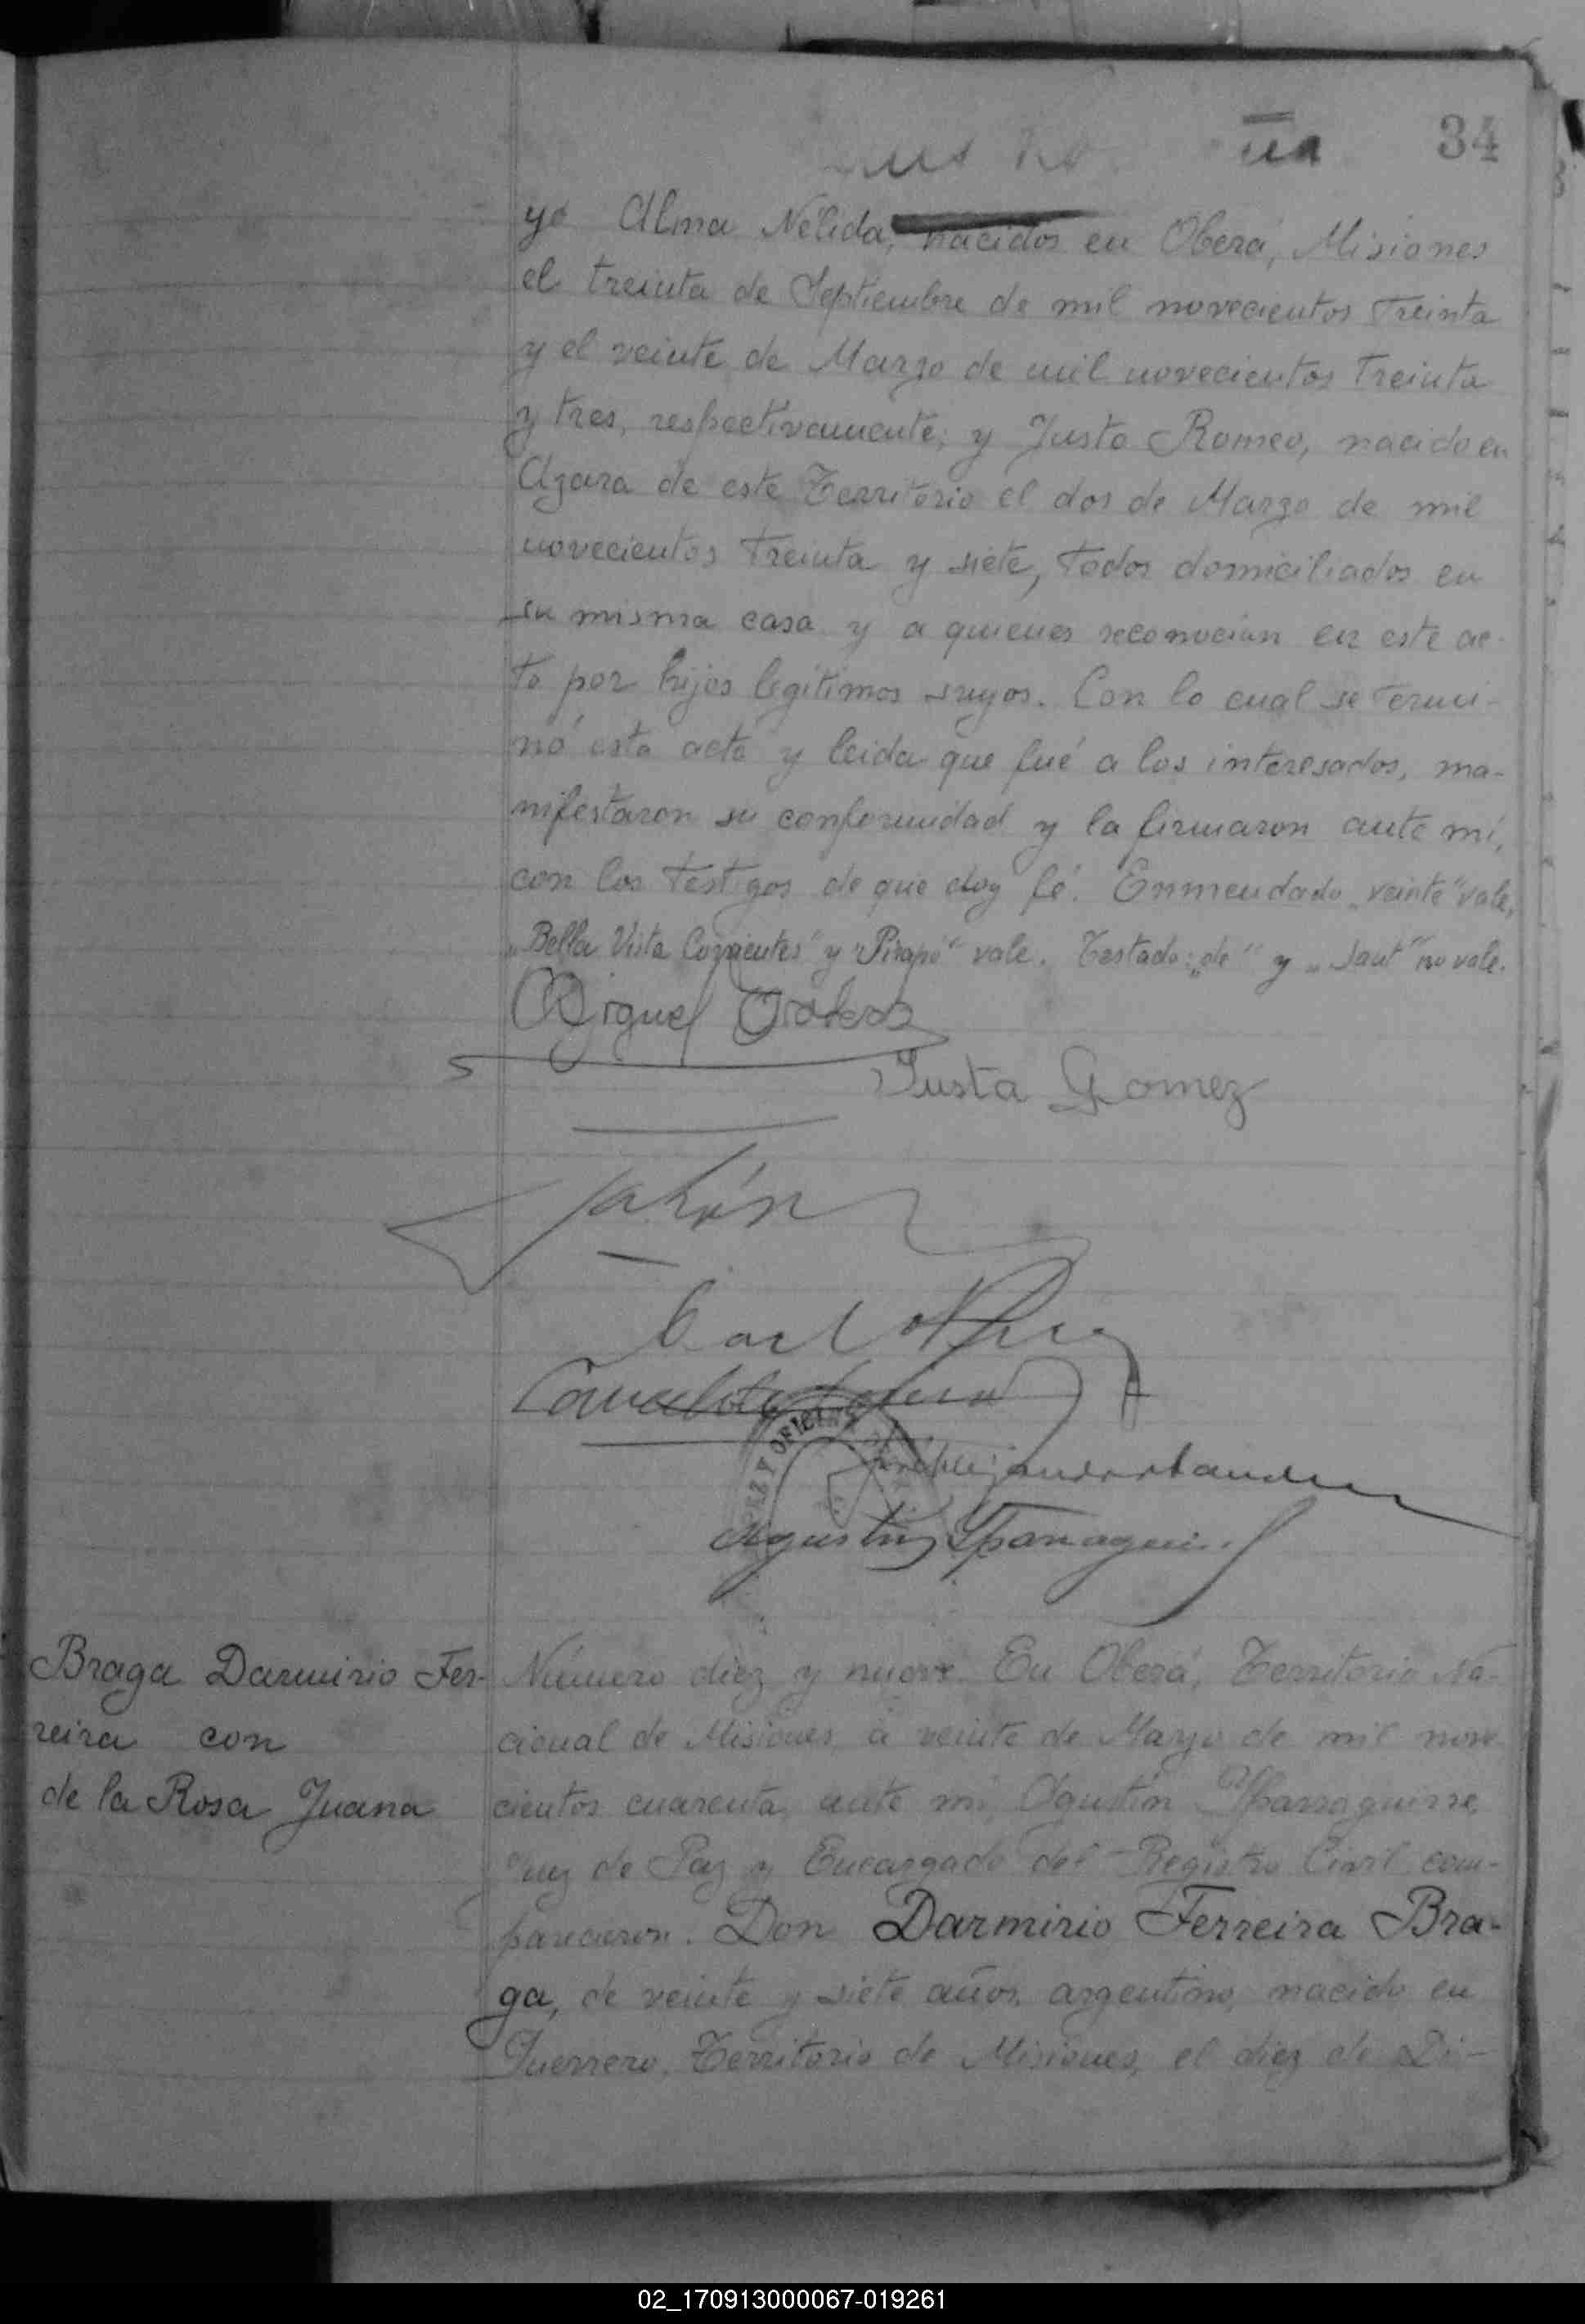 34
yo Alma Nélida, nacidos en Oberá, Misiones
el treinta de Septiembre de mil novecientos treinta
y el veinte de Marzo de mil novecientos treinta
y tres, respectivamente; y Justo Romeo, nacido en
Azara de este Territorio el dos de Marzo de mil
novecientos treinta y siete, todos domiciliados en
su misma casa y a quienes reconocian en este ac-
to por hijos legítimos suyos. Con lo cual se termi-
nó esta acta y leida que fué a los interesados, ma-
nifestaron su conformidad y la firmaron ante mí,
con los testgos de que doy fé. Enmendado „veinte" vale,
„Bella Vista Corrientes" y „Pirapó" vale. Testado: „de" y „saut" no vale.
Miguel
Justa Gomez
OFICINA
Agustin Yparraguirre
Braga Darmirio Fer-
reira con
de la Rosa Juana
Número diez y nueve. En Oberá, Territorio Na-
cional de Misiones, a veinte de Marzo de mil nove-
cientos cuarenta, ante mí, Agustín Yparraguirre,
Juez de Paz y Encargado del Registro Civil com-
parecieron. Don Darmirio Ferreira Bra-
ga, de veinte y siete años, argentino, nacido en
Guerrero, Territorio de Misiones, el diez de Di-
02_170913000067-019261